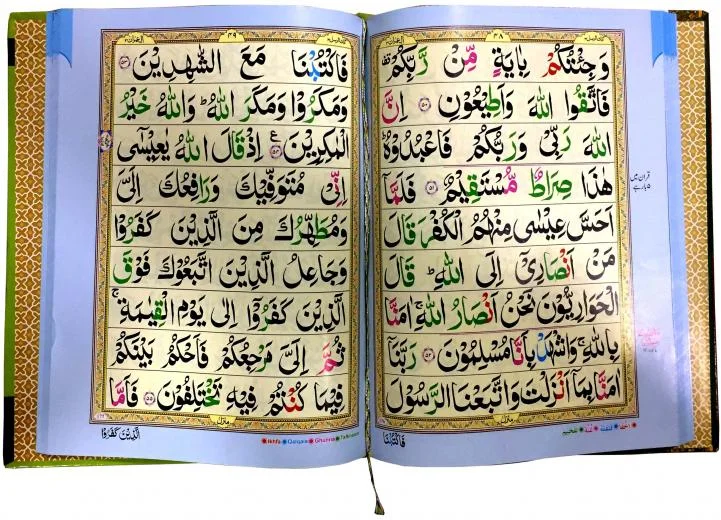 وَجِئْتُكُمْ بِاٰيَةٍ مِّنْ رَّبِّكُمْ
فَاتَّقُوا اللّٰهَ وَاَطِيْعُوْنِ ۝۵۰ اِنَّ
اللّٰهَ رَبِّيْ وَرَبُّكُمْ فَاعْبُدُوْهُ ؕ
هٰذَا صِرَاطٌ مُّسْتَقِيْمٌ ۝۵۱ فَلَمَّاۤ
اَحَسَّ عِيْسٰى مِنْهُمُ الْكُفْرَ قَالَ
مَنْ اَنْصَارِيْۤ اِلَى اللّٰهِ ؕ قَالَ
الْحَوَارِيُّوْنَ نَحْنُ اَنْصَارُ اللّٰهِ ۚ اٰمَنَّا
بِاللّٰهِ ۚ وَاشْهَدْ بِاَنَّا مُسْلِمُوْنَ ۝۵۲ رَبَّنَاۤ
اٰمَنَّا بِمَاۤ اَنْزَلْتَ وَاتَّبَعْنَا الرَّسُوْلَ
قرآن میں
فَاكْتُبْنَا
۴۸
۴۹
فَاكْتُبْنَا مَعَ الشّٰهِدِيْنَ ۝۵۳
وَمَكَرُوْا وَمَكَرَ اللّٰهُ ؕ وَاللّٰهُ خَيْرُ
الْمٰكِرِيْنَ ۝۵۴ ع اِذْ قَالَ اللّٰهُ يٰعِيْسٰۤى
اِنِّيْ مُتَوَفِّيْكَ وَرَافِعُكَ اِلَيَّ
وَمُطَهِّرُكَ مِنَ الَّذِيْنَ كَفَرُوْا
وَجَاعِلُ الَّذِيْنَ اتَّبَعُوْكَ فَوْقَ
الَّذِيْنَ كَفَرُوْۤا اِلٰى يَوْمِ الْقِيٰمَةِ ۚ
ثُمَّ اِلَيَّ مَرْجِعُكُمْ فَاَحْكُمُ بَيْنَكُمْ
فِيْمَا كُنْتُمْ فِيْهِ تَخْتَلِفُوْنَ ۝۵۵ فَاَمَّا
الَّذِيْنَ كَفَرُوْا
Ikhfa Qalqala Ghunna